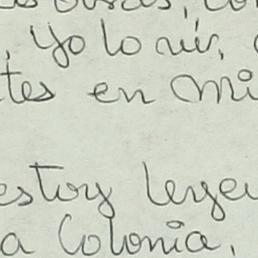 , yo lo vir,
tes en mi
estoy leyen
a Colonia,